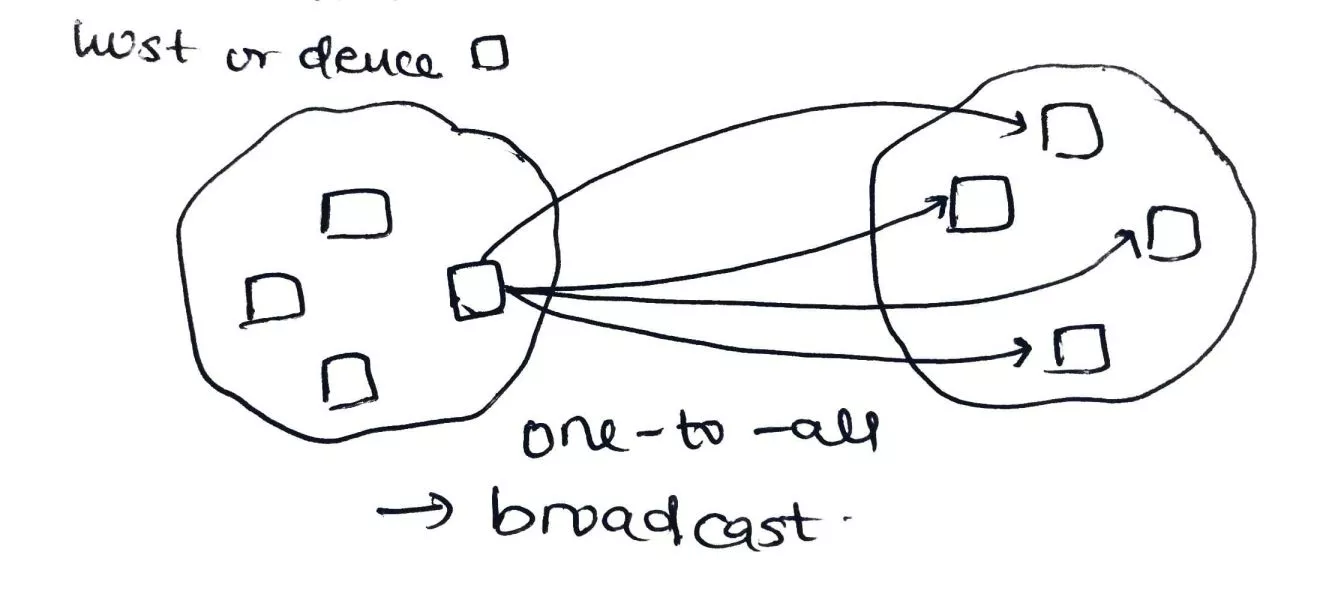 host or device □
one-to-all
→ broadcast.